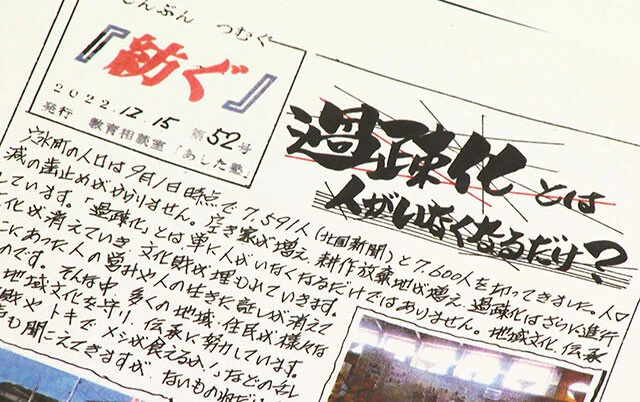 しんぶん つむぐ
『紡ぐ』
2022.12.15 第52号
発行 教育相談室「あした塾」
過疎化とは
人がいなくなるだけ?
穴水町の人口は9月1日時点で7,591人(北國新聞)と7,600人を切ってきました。人口
減の歯止めがかかりません。空き家が増え、耕作放棄地が増え、過疎化はさらに進行
しています。「過疎化」とは単に人がいなくなるだけではありません。地域文化、伝承
文化が消えていき、文化財が埋もれていきます。
こにあった人の営みや人の生きた証しが消えて
のです。そんな中、多くの地域、住民が様々な
地域文化を守り、伝承に努力しています。
財やトキでメシが食えるか!」などの乱
も聞こえてきますが、ないものねだ